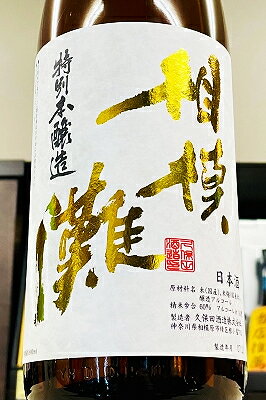 相模灘
特別本醸造
日本酒
原材料名 米(国産)、米麹(国産米)
醸造アルコール
精米歩合 60%
製造者 久保田酒造株式会社
神奈川県相模原市緑区
製造年月